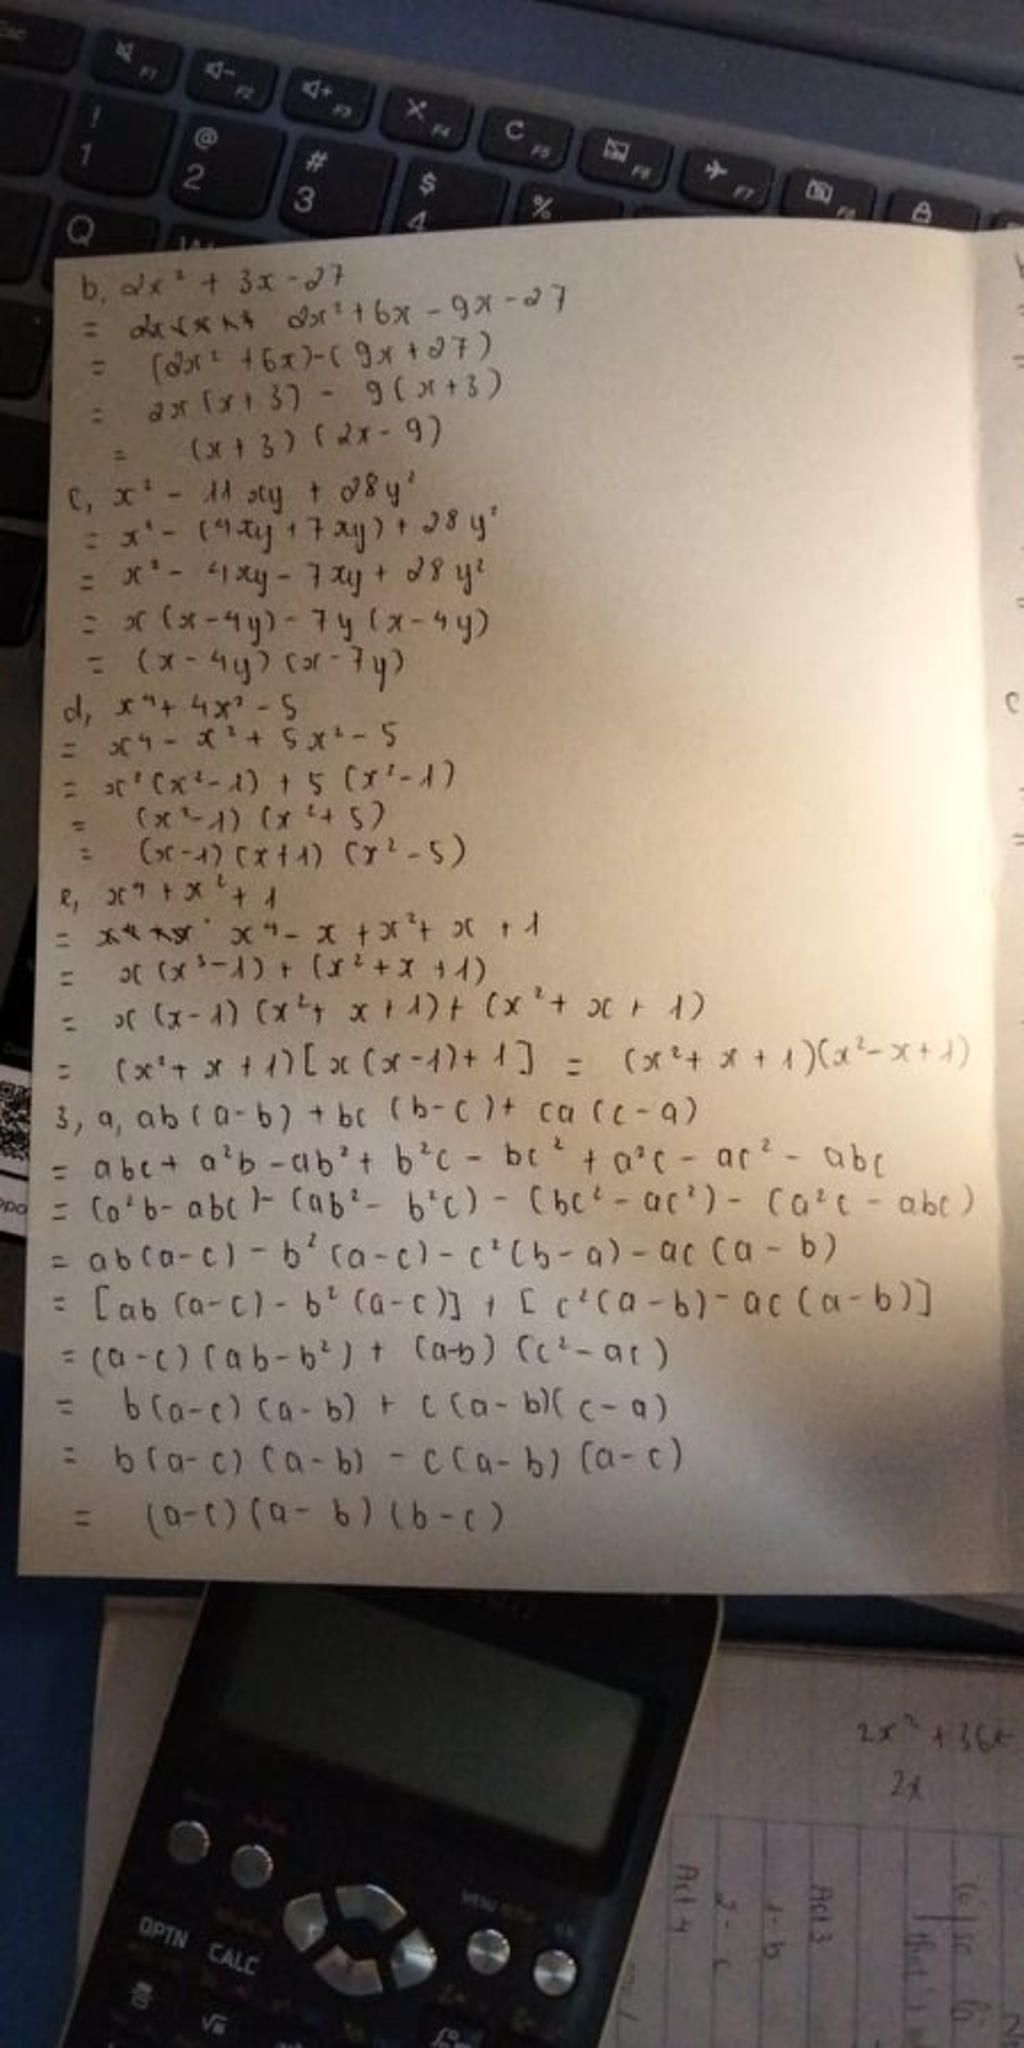 Esc F1 F2 F3 F4 C F5 F6 F7
! 1 @ 2 # 3 $ 4 %
Q
b, 2x² + 3x - 27
= 2x² + 6x - 9x - 27
= (2x² + 6x) - (9x + 27)
= 2x (x + 3) - 9 (x + 3)
= (x + 3) (2x - 9)
c, x² - 11xy + 28y²
= x² - (4xy + 7xy) + 28y²
= x² - 4xy - 7xy + 28y²
= x (x - 4y) - 7y (x - 4y)
= (x - 4y) (x - 7y)
d, x⁴ + 4x² - 5
= x⁴ - x² + 5x² - 5
= x² (x² - 1) + 5 (x² - 1)
= (x² - 1) (x² + 5)
= (x - 1) (x + 1) (x² - 5)
e, x⁴ + x² + 1
= x⁴ - x + x² + x + 1
= x (x³ - 1) + (x² + x + 1)
= x (x - 1) (x² + x + 1) + (x² + x + 1)
= (x² + x + 1) [x (x - 1) + 1] = (x² + x + 1)(x² - x + 1)
3, a, ab (a - b) + bc (b - c) + ca (c - a)
= abc + a²b - ab² + b²c - bc² + a²c - ac² - abc
= (a²b - abc) - (ab² - b²c) - (bc² - ac²) - (a²c - abc)
= ab (a - c) - b² (a - c) - c² (b - a) - ac (a - b)
= [ab (a - c) - b² (a - c)] + [c² (a - b) - ac (a - b)]
= (a - c) (ab - b²) + (a - b) (c² - ac)
= b (a - c) (a - b) + c (a - b)(c - a)
= b (a - c) (a - b) - c (a - b) (a - c)
= (a - c) (a - b) (b - c)
2x² + 36
2x
Act 3
1 - b
2 - c
Act 4
MENU
OPTN CALC